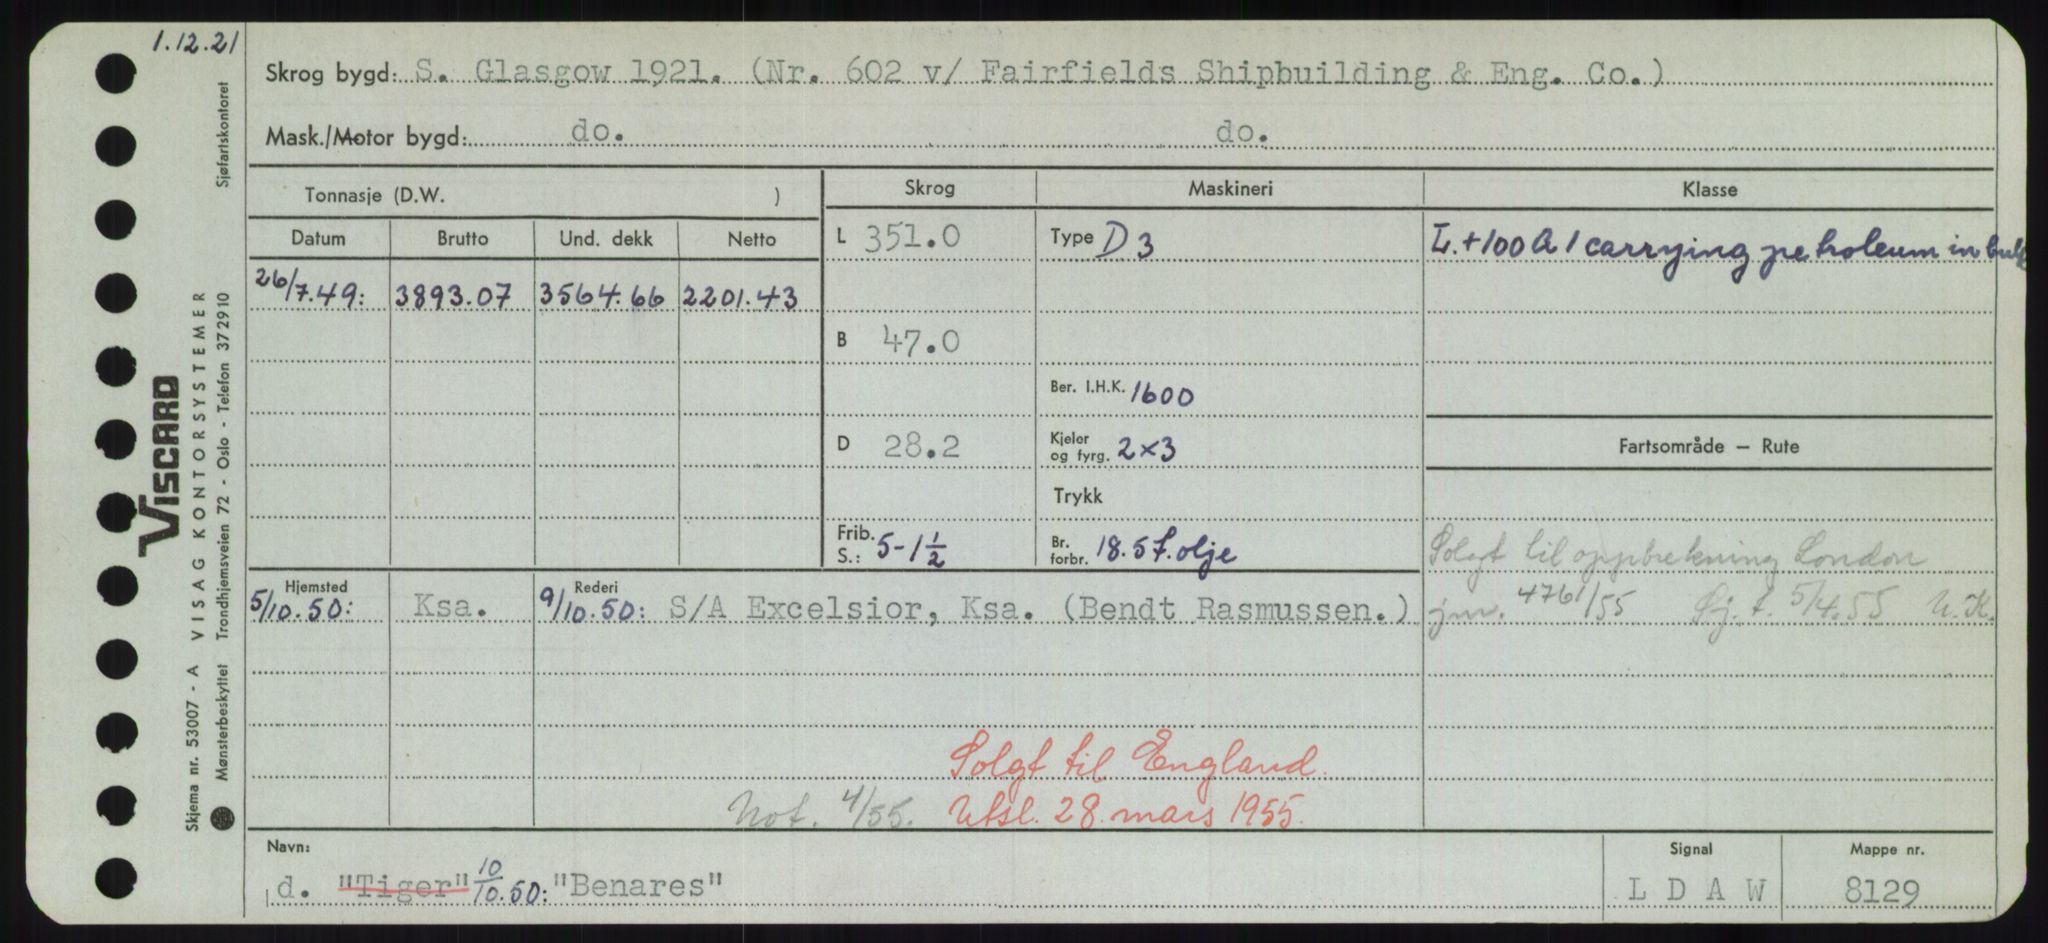 1.12.21
Skrog bygd: S. Glasgow 1921. (Nr. 602 v/ Fairfields Shipbuilding & Eng. Co.)
Mask./Motor bygd: do. do.
Tonnasje (D.W. )
Skrog
Maskineri
Klasse
Datum Brutto Und. dekk Netto
26/7.49: 3893.07 3564.66 2201.43
L 351.0
B 47.0
D 28.2
Frib. S.: 5-1 1/2
Type D 3
Ber. I.H.K. 1600
Kjeler og fyrg. 2x3
Trykk
Br. forbr. 18.5 t. olje
L.+100 A 1 carrying petroleum in bulk
Fartsområde — Rute
Solgt til opphekning London
jnr. 4761/55 Sj. f. 5/4.55 U.K.
Hjemsted Rederi
5/10.50: Ksa. 9/10.50: S/A Excelsior, Ksa. (Bendt Rasmussen.)
Solgt til England.
Not. 4/55. Utsl. 28. mars 1955.
Navn: Signal Mappe nr.
d. "Tiger" 10/10.50: "Benares" L D A W 8129
Sjøfartskontoret
VISCARD
Skjema nr. 53007 - A VISAG KONTORSYSTEMER
Mønsterbeskyttet Trondhjemsveien 72 - Oslo - Telefon 372910